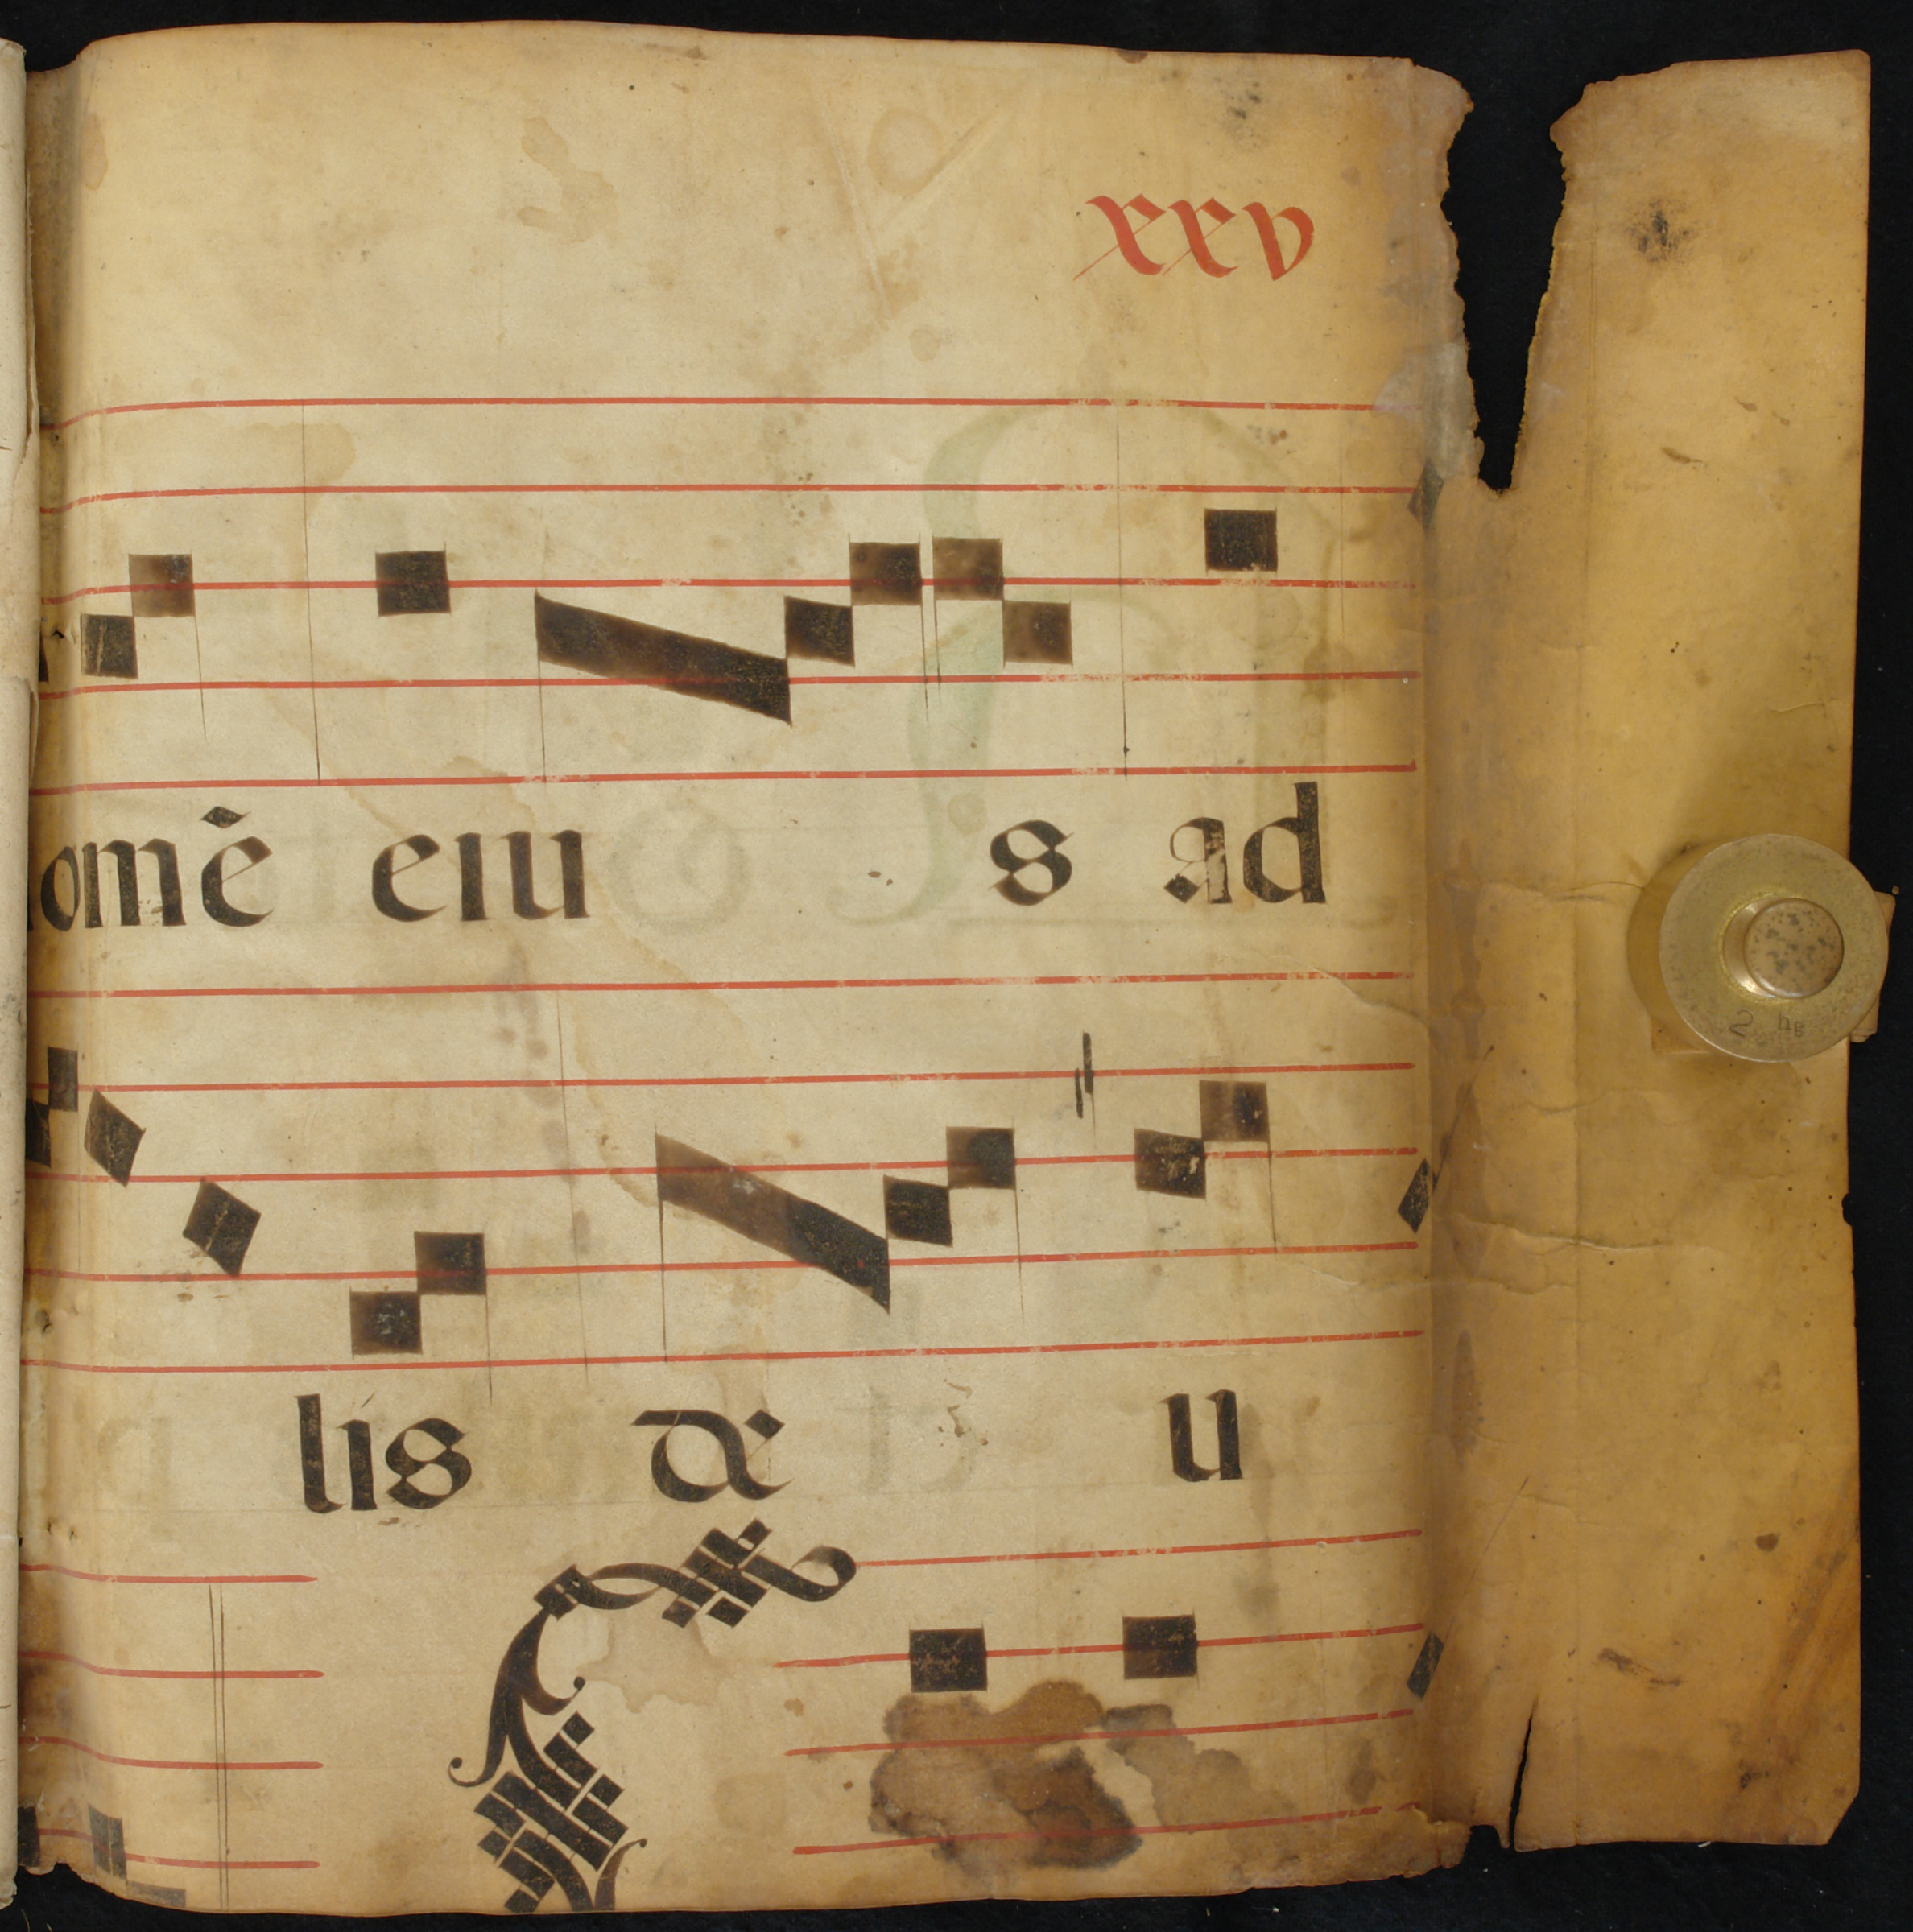 xxv
omẽ eiu s ad
lis æ u
2 hg